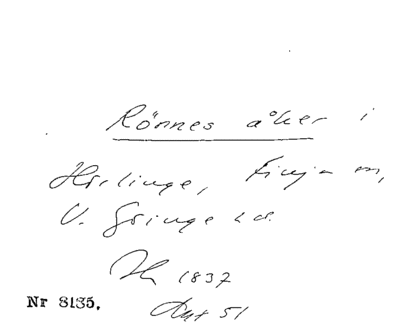 Rönnes åker i
Hörlinge, Finja sn,
V. Göinge hd.
1837
Nr 8135. Aut 51